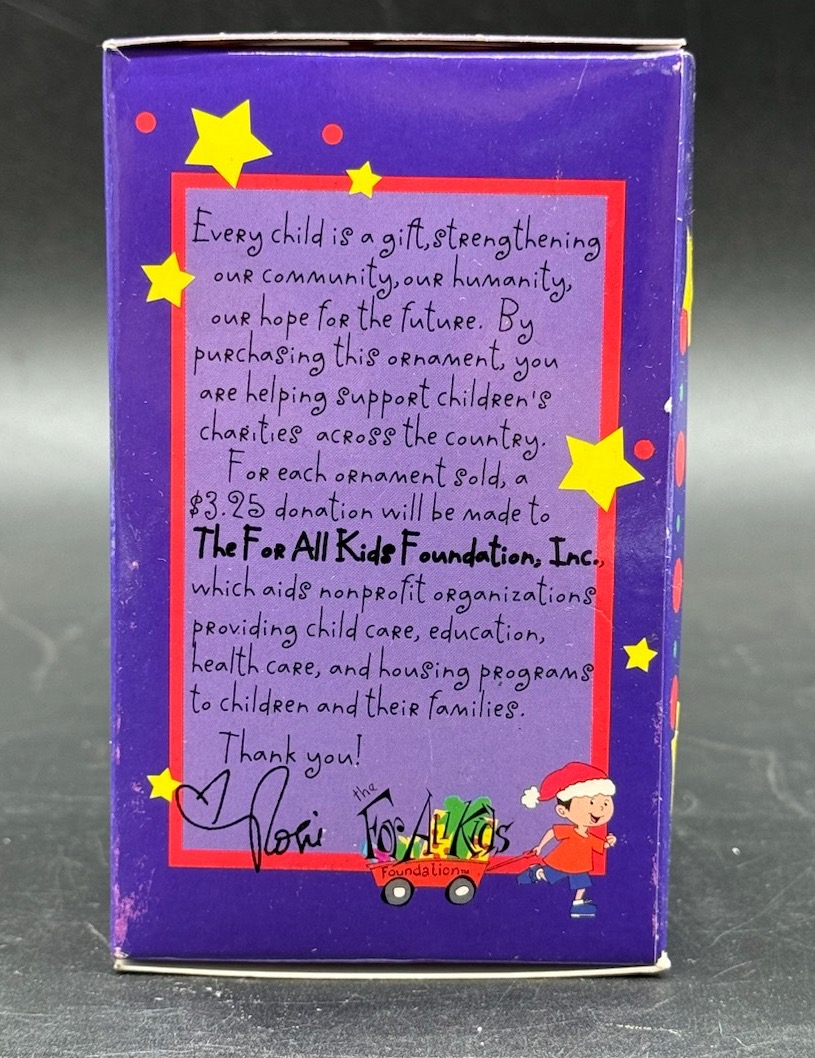 Every child is a gift, strengthening
our community, our humanity,
our hope for the future. By
purchasing this ornament, you
are helping support children's
charities across the country.
For each ornament sold, a
$3.25 donation will be made to
The For All Kids Foundation, Inc.,
which aids nonprofit organizations
providing child care, education,
health care, and housing programs
to children and their families.
Thank you!
Rosie
the
For All Kids
Foundation™